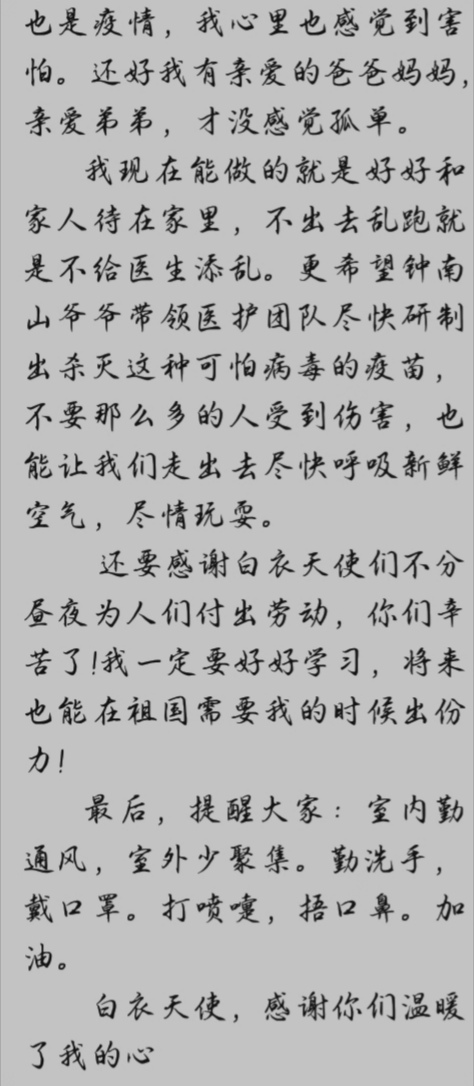 也是疫情，我心里也感觉到害
怕。还好我有亲爱的爸爸妈妈，
亲爱弟弟，才没感觉孤单。
我现在能做的就是好好和
家人待在家里，不出去乱跑就
是不给医生添乱。更希望钟南
山爷爷带领医护团队尽快研制
出杀灭这种可怕病毒的疫苗，
不要那么多的人受到伤害，也
能让我们走出去尽快呼吸新鲜
空气，尽情玩耍。
还要感谢白衣天使们不分
昼夜为人们付出劳动，你们辛
苦了!我一定要好好学习，将来
也能在祖国需要我的时候出份
力!
最后，提醒大家：室内勤
通风，室外少聚集。勤洗手，
戴口罩。打喷嚏，捂口鼻。加
油。
白衣天使，感谢你们温暖
了我的心